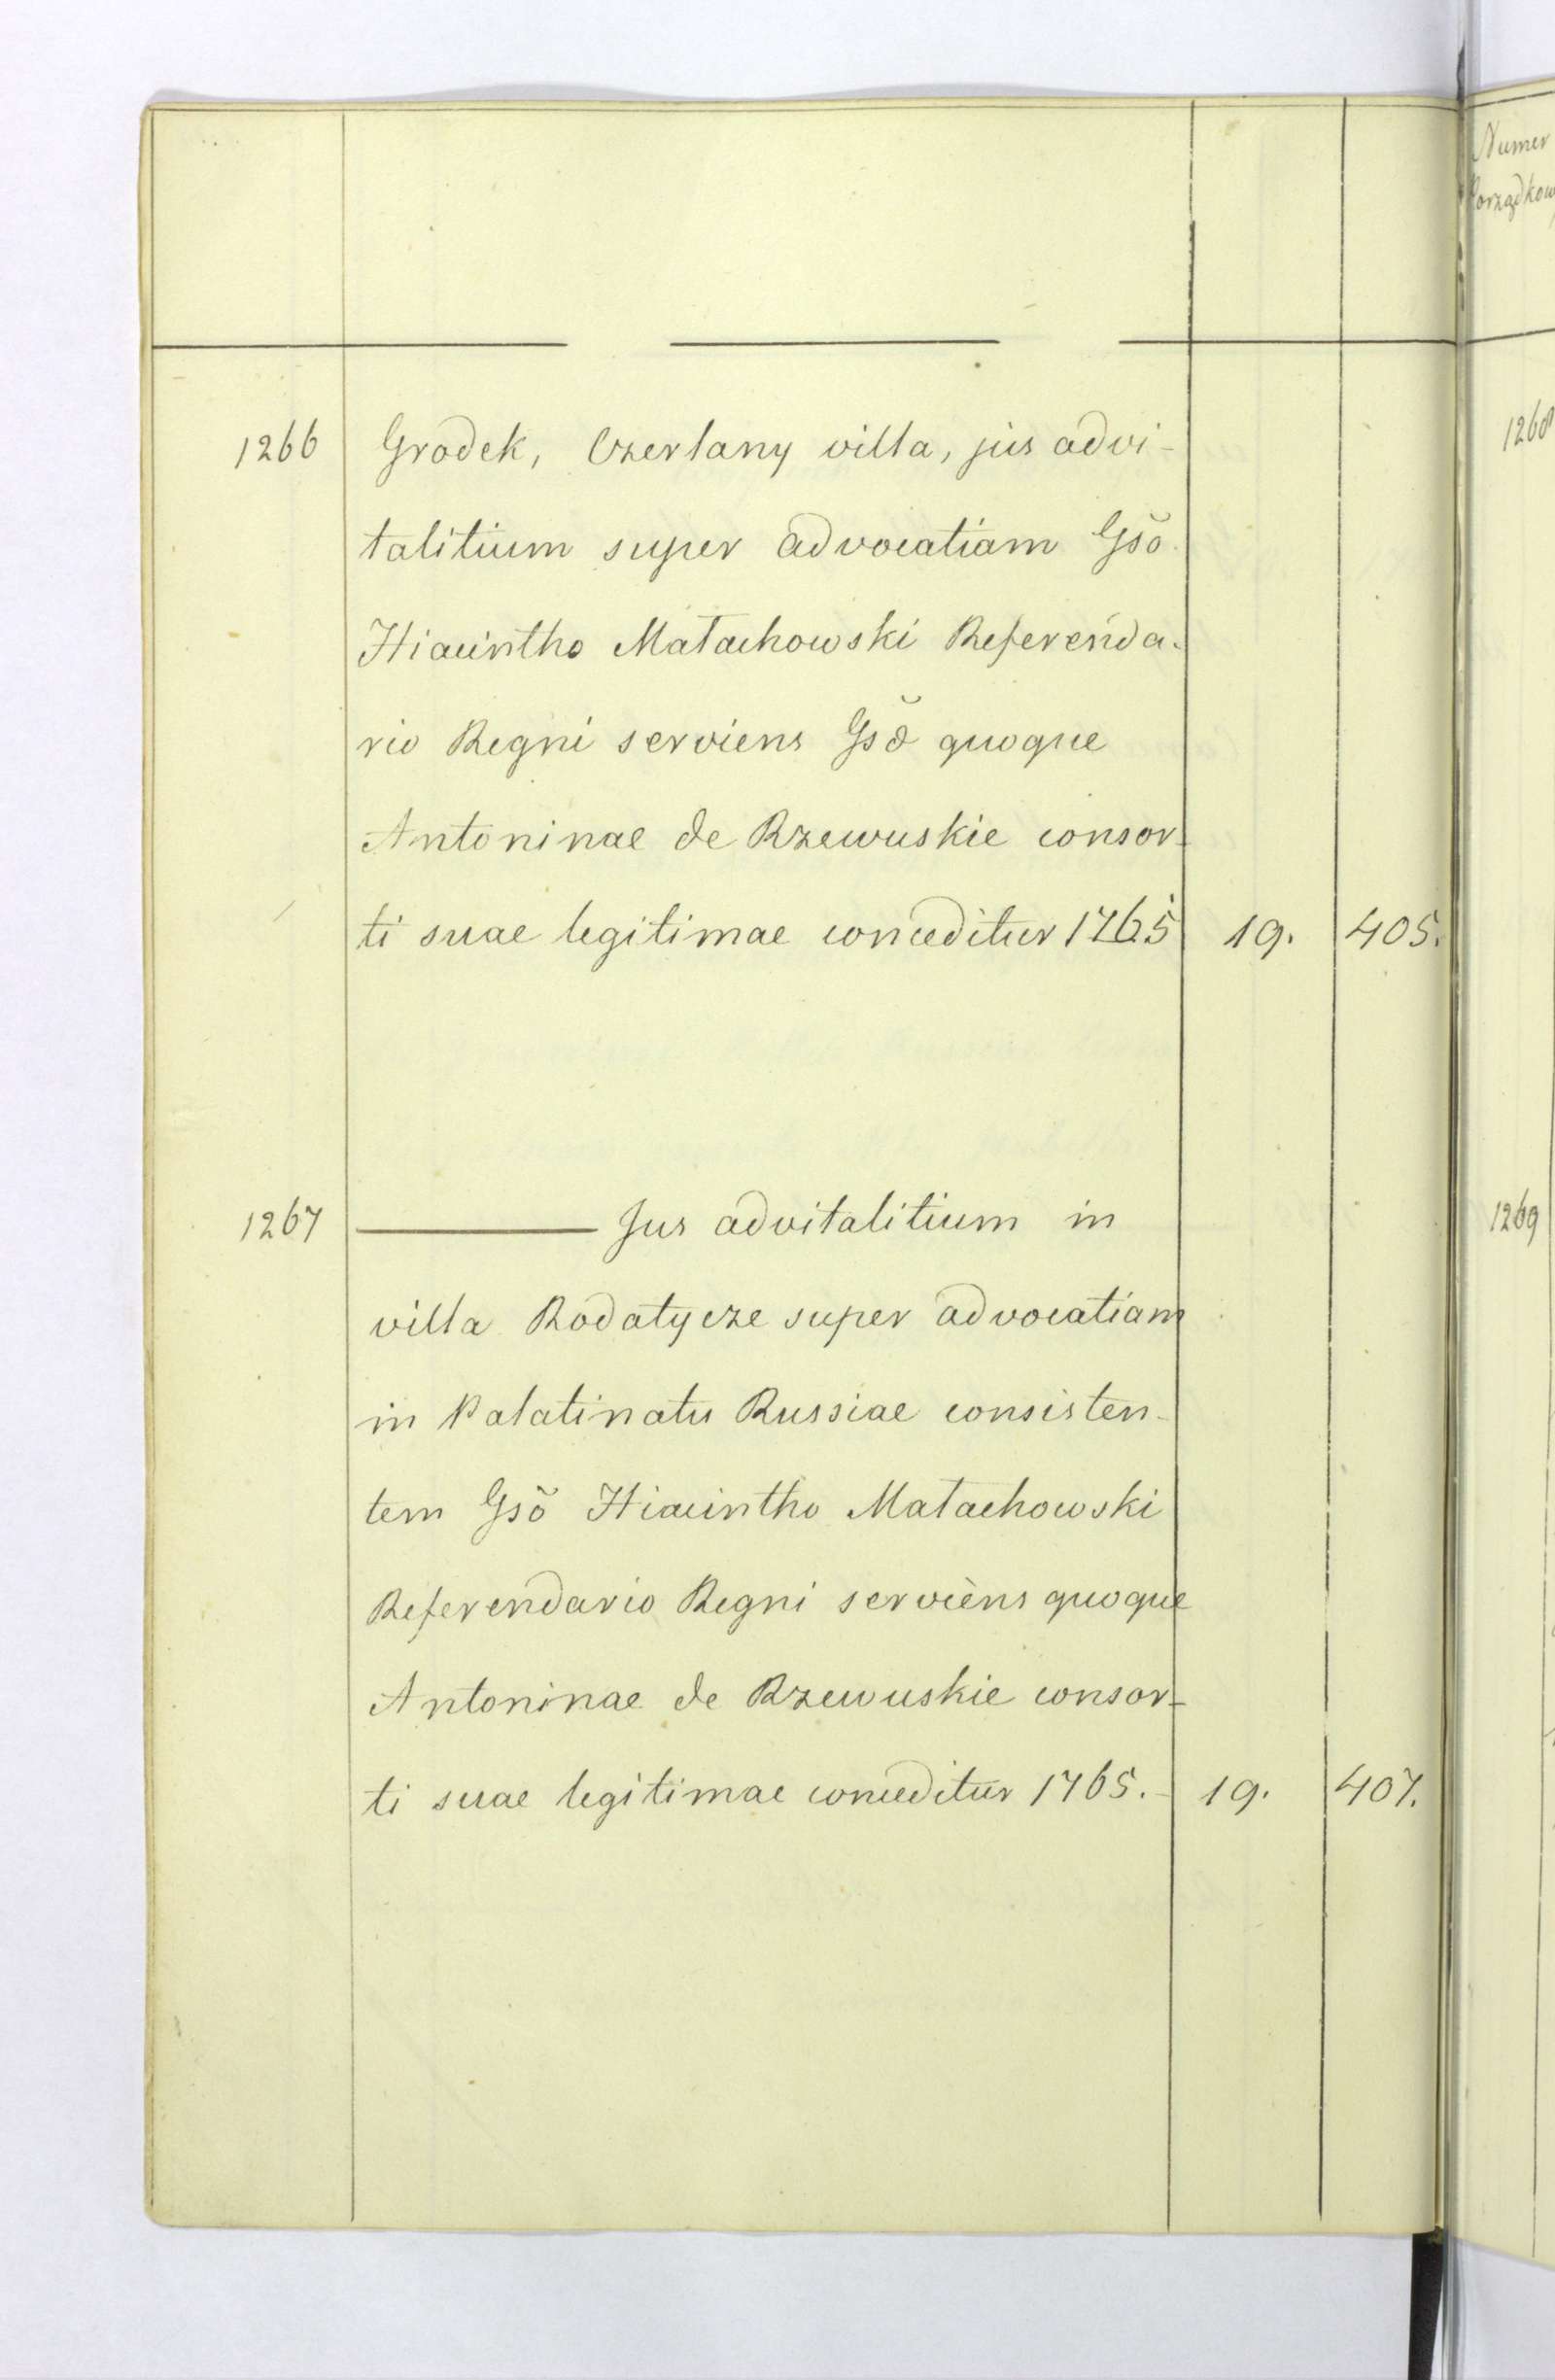 1266 Grodek, Czerlany villa, jus advi-
talitium super advocatiam Gsõ
Hiacintho Małachowski Referenda-
rio Regni serviens Gsõ quoque
Antoninae de Rzewuskie consor-
ti suae legitimae conceditur 1765 19. 405.
1267 ——— Jus advitalitium in
villa Rodatycze super advocatiam
in Palatinatu Russiae consisten-
tem Gsõ Hiacintho Małachowski
Referendario Regni serviens quoque
Antoninae de Rzewuskie consor-
ti suae legitimae conceditur 1765. 19. 407.
Numer
Porządkow
1268
1269